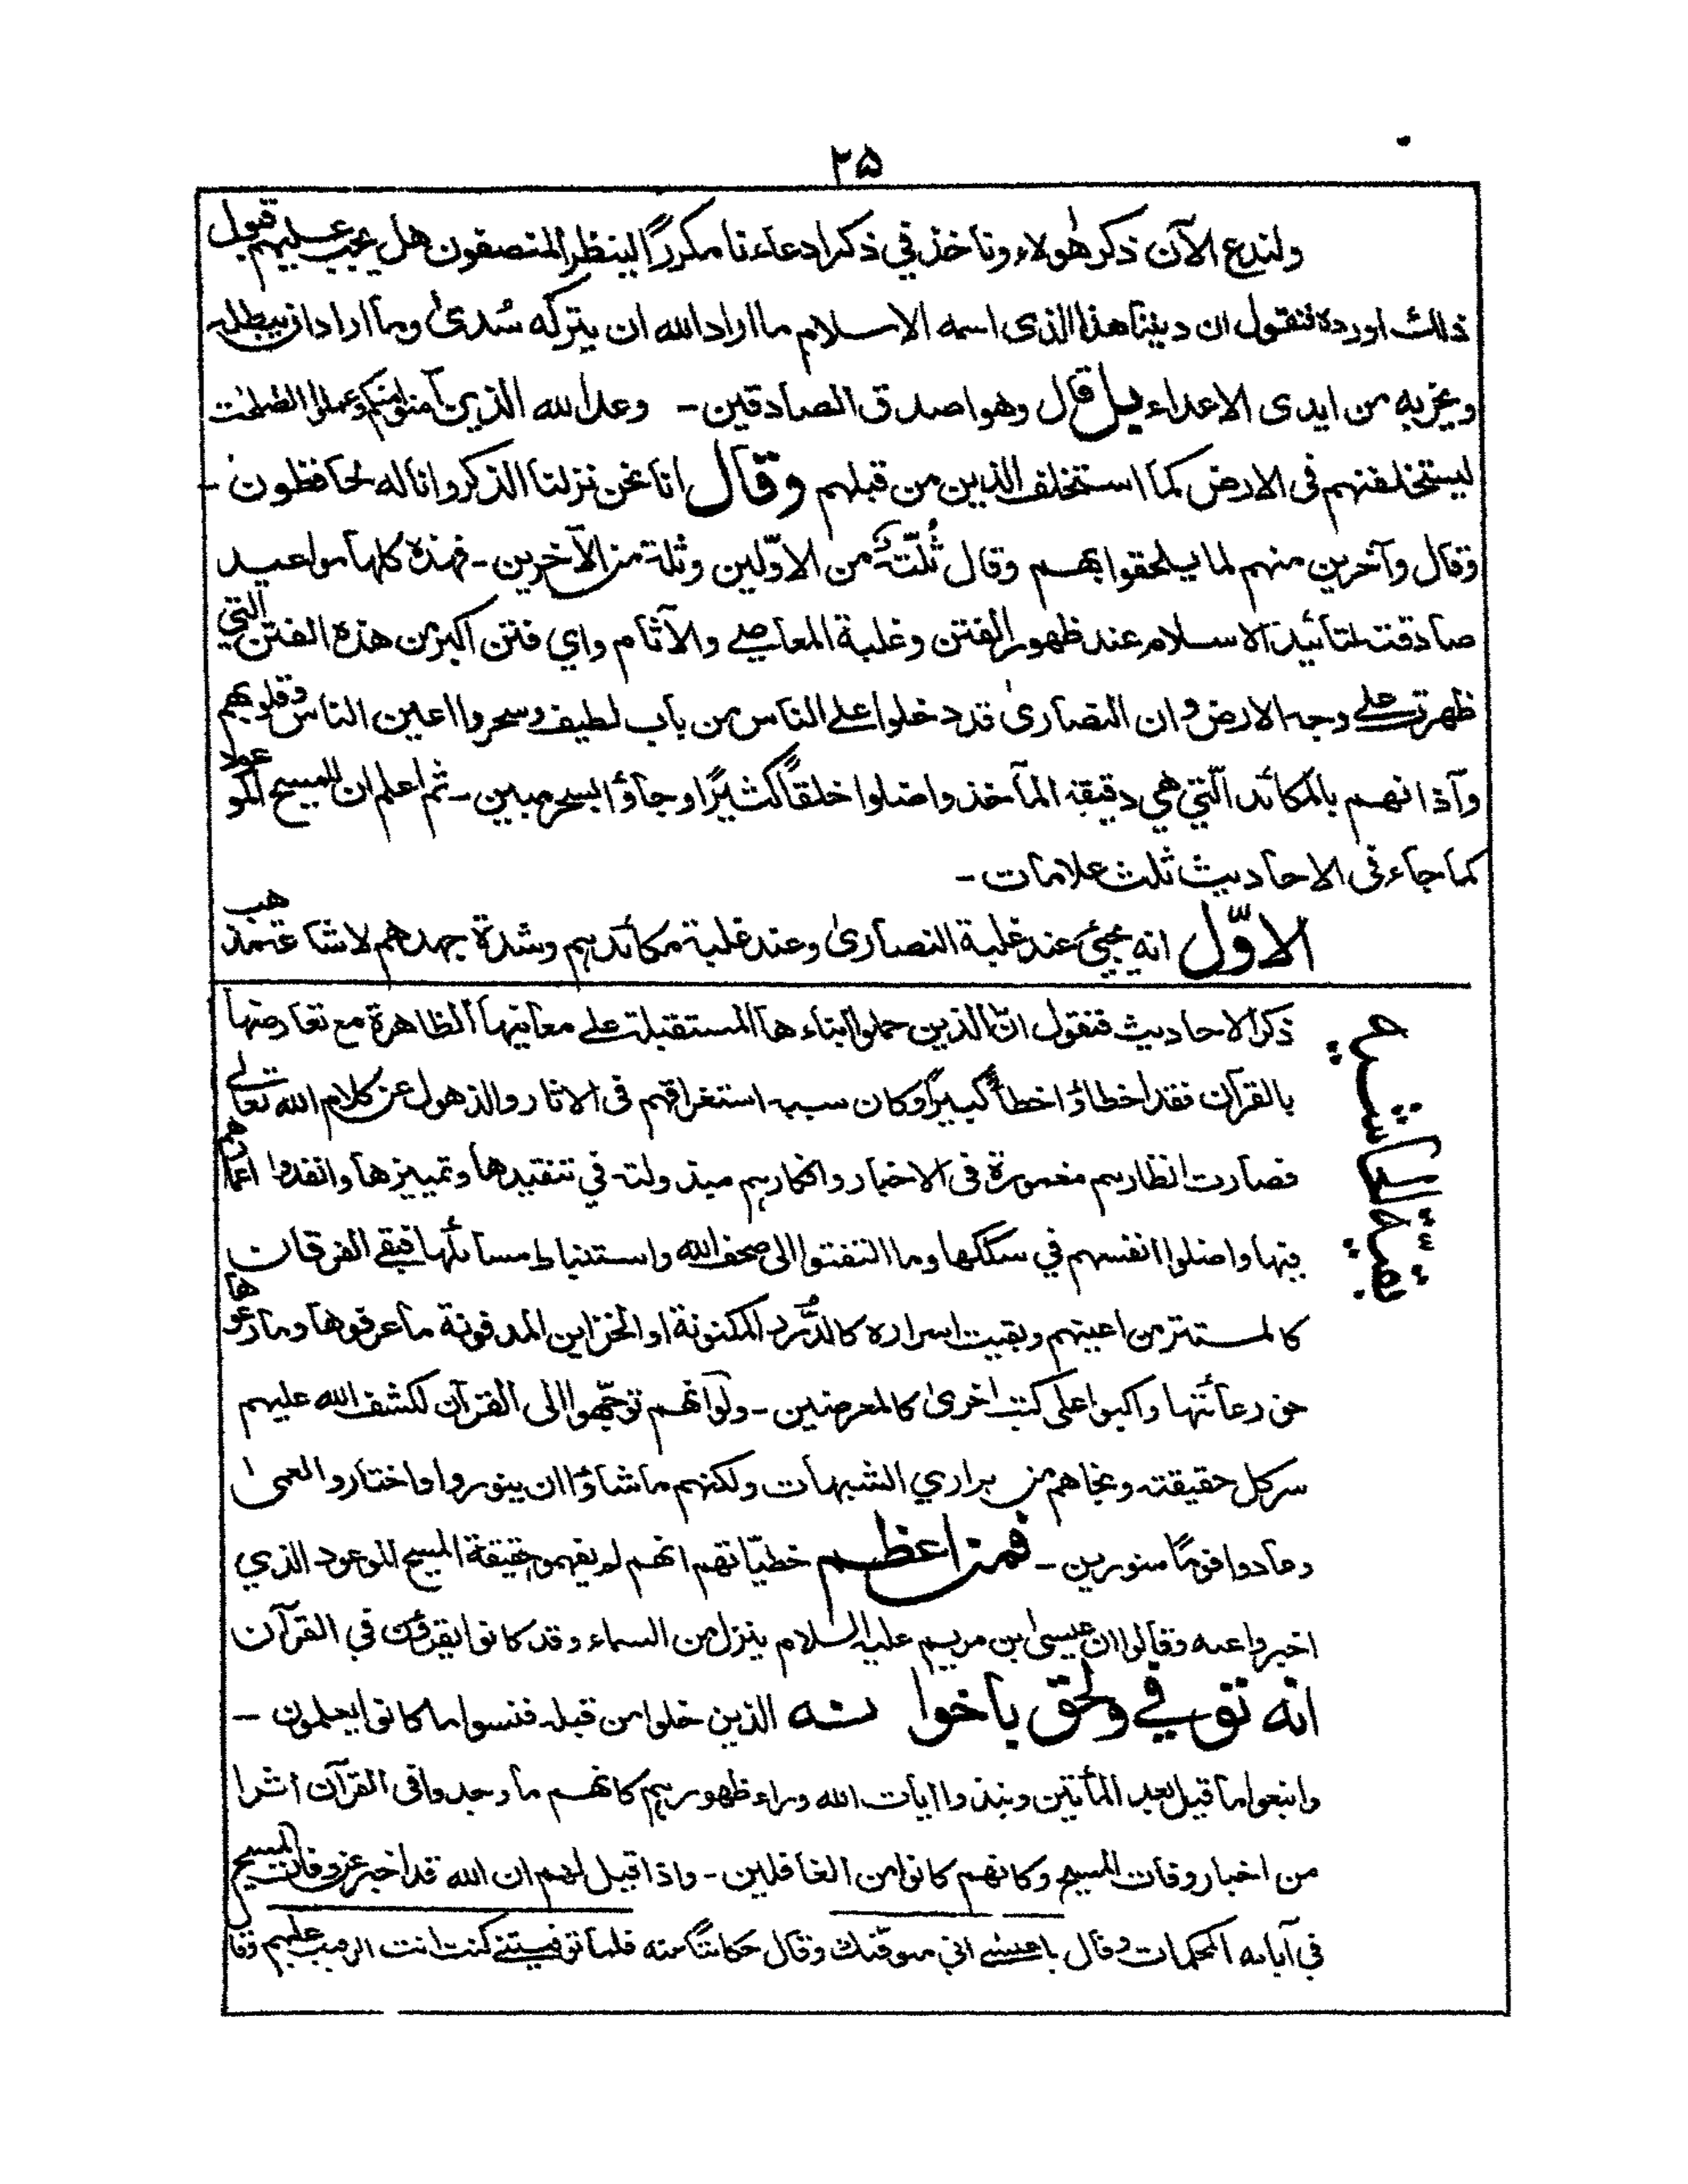 ۲۵
ولندع الآن ذكر هٰولاء وناخذ في ذكر ادعاءنا مكررًا لينظر المنصفون هل يجب عليهم قبول
ذلك او رده فنقول ان ديننا هذا الذى اسمه الاسلام ما اراد الله ان يتركه سُدىٰ وما اراد ان يبطله
ويخربه من ايدى الاعداء بل قال وهو اصدق الصادقين - وعد الله الذين آمنوا منكم وعملوا الصّٰلحٰت
ليستخلفنهم فى الارض كما استخلف الذين من قبلهم وقال انا نحن نزلنا الذكر وانا له لحافظون -
وقال وآخرين منهم لما يلحقوا بهم وقال ثُلّة من الاوّلين وثلة من الآخرين - فهذه كلها مواعيد
صادقة لتائيد الاسلام عند ظهور الفتن وغلبة المعاصے والآثام واي فتن اكبر من هذه الفتن التي
ظهرت علے وجه الارض وان النصارىٰ قد دخلوا علے الناس من باب لطيف وسحروا اعين الناس وقلوبهم
وآذانهم بالمكائد الّتي هي دقيقة المآخذ واضلوا خلقًا كثيرًا وجاؤا بسحر مبين - ثم اعلم ان للمسيح الموعود
كما جاء فى الاحاديث ثلث علامات -
الاوّل انه يجيئ عند غلبة النصارىٰ وعند غلبة مكائدهم وشدة جهدهم لاشاعة مذهب
بقية الحاشية
ذكر الاحاديث فنقول انّ الذين حملوا انباءها المستقبلة علے معانيها الظاهرة مع تعارضها
بالقرآن فقد اخطاؤا خطأً كبيرًا وكان سبب استغراقهم فى الاثار والذهول عن كلام الله تعالے
فصارت انظارهم مغمورة فى الاخبار وافكارهم مبذولة في تنقيدها وتمييزها وانفدوا اعمارهم
فيها واضلوا انفسهم في سككها وما التفتوا الى صحف الله واستنباط مسائلها فبقے الفرقان
كالمستتر من اعينهم وبقيت اسراره كالدُّرر المكنونة او الخزاين المدفونة ما عرفوها وما رعوها
حق رعائتها واكبوا على كتب اخرىٰ كالمعرضين - ولو انهم توجّهوا الى القرآن لكشف الله عليهم
سر كل حقيقة ونجاهم من براري الشبهات ولكنهم ما شاؤا ان ينوروا واختاروا العمىٰ
وعادوا قومًا منورين - فمن اعظم خطيّاتهم انهم لم يفهموا حقيقة المسيح الموعود الذي
اخبروا عنه وقالوا ان عيسىٰ بن مريم عليه السلام ينزل من السماء وقد كانوا يقرؤن في القرآن
انه توفي ولحق باخوانه الذين خلوا من قبله فنسوا ما كانوا يعلمون -
واتبعوا ما قيل بعد المأتين ونبذوا ايات الله وراء ظهورهم كانهم ما وجدوا فى القرآن اثرا
من اخبار وفات المسيح وكانهم كانوا من الغافلين - واذا قيل لهم ان الله قد اخبر عن وفات المسيح
في آياته المحكمات وقال يا عيسے اني متوفيك وقال حكايتًا منه فلما توفيتنے كنت انت الرقيب عليهم وقال